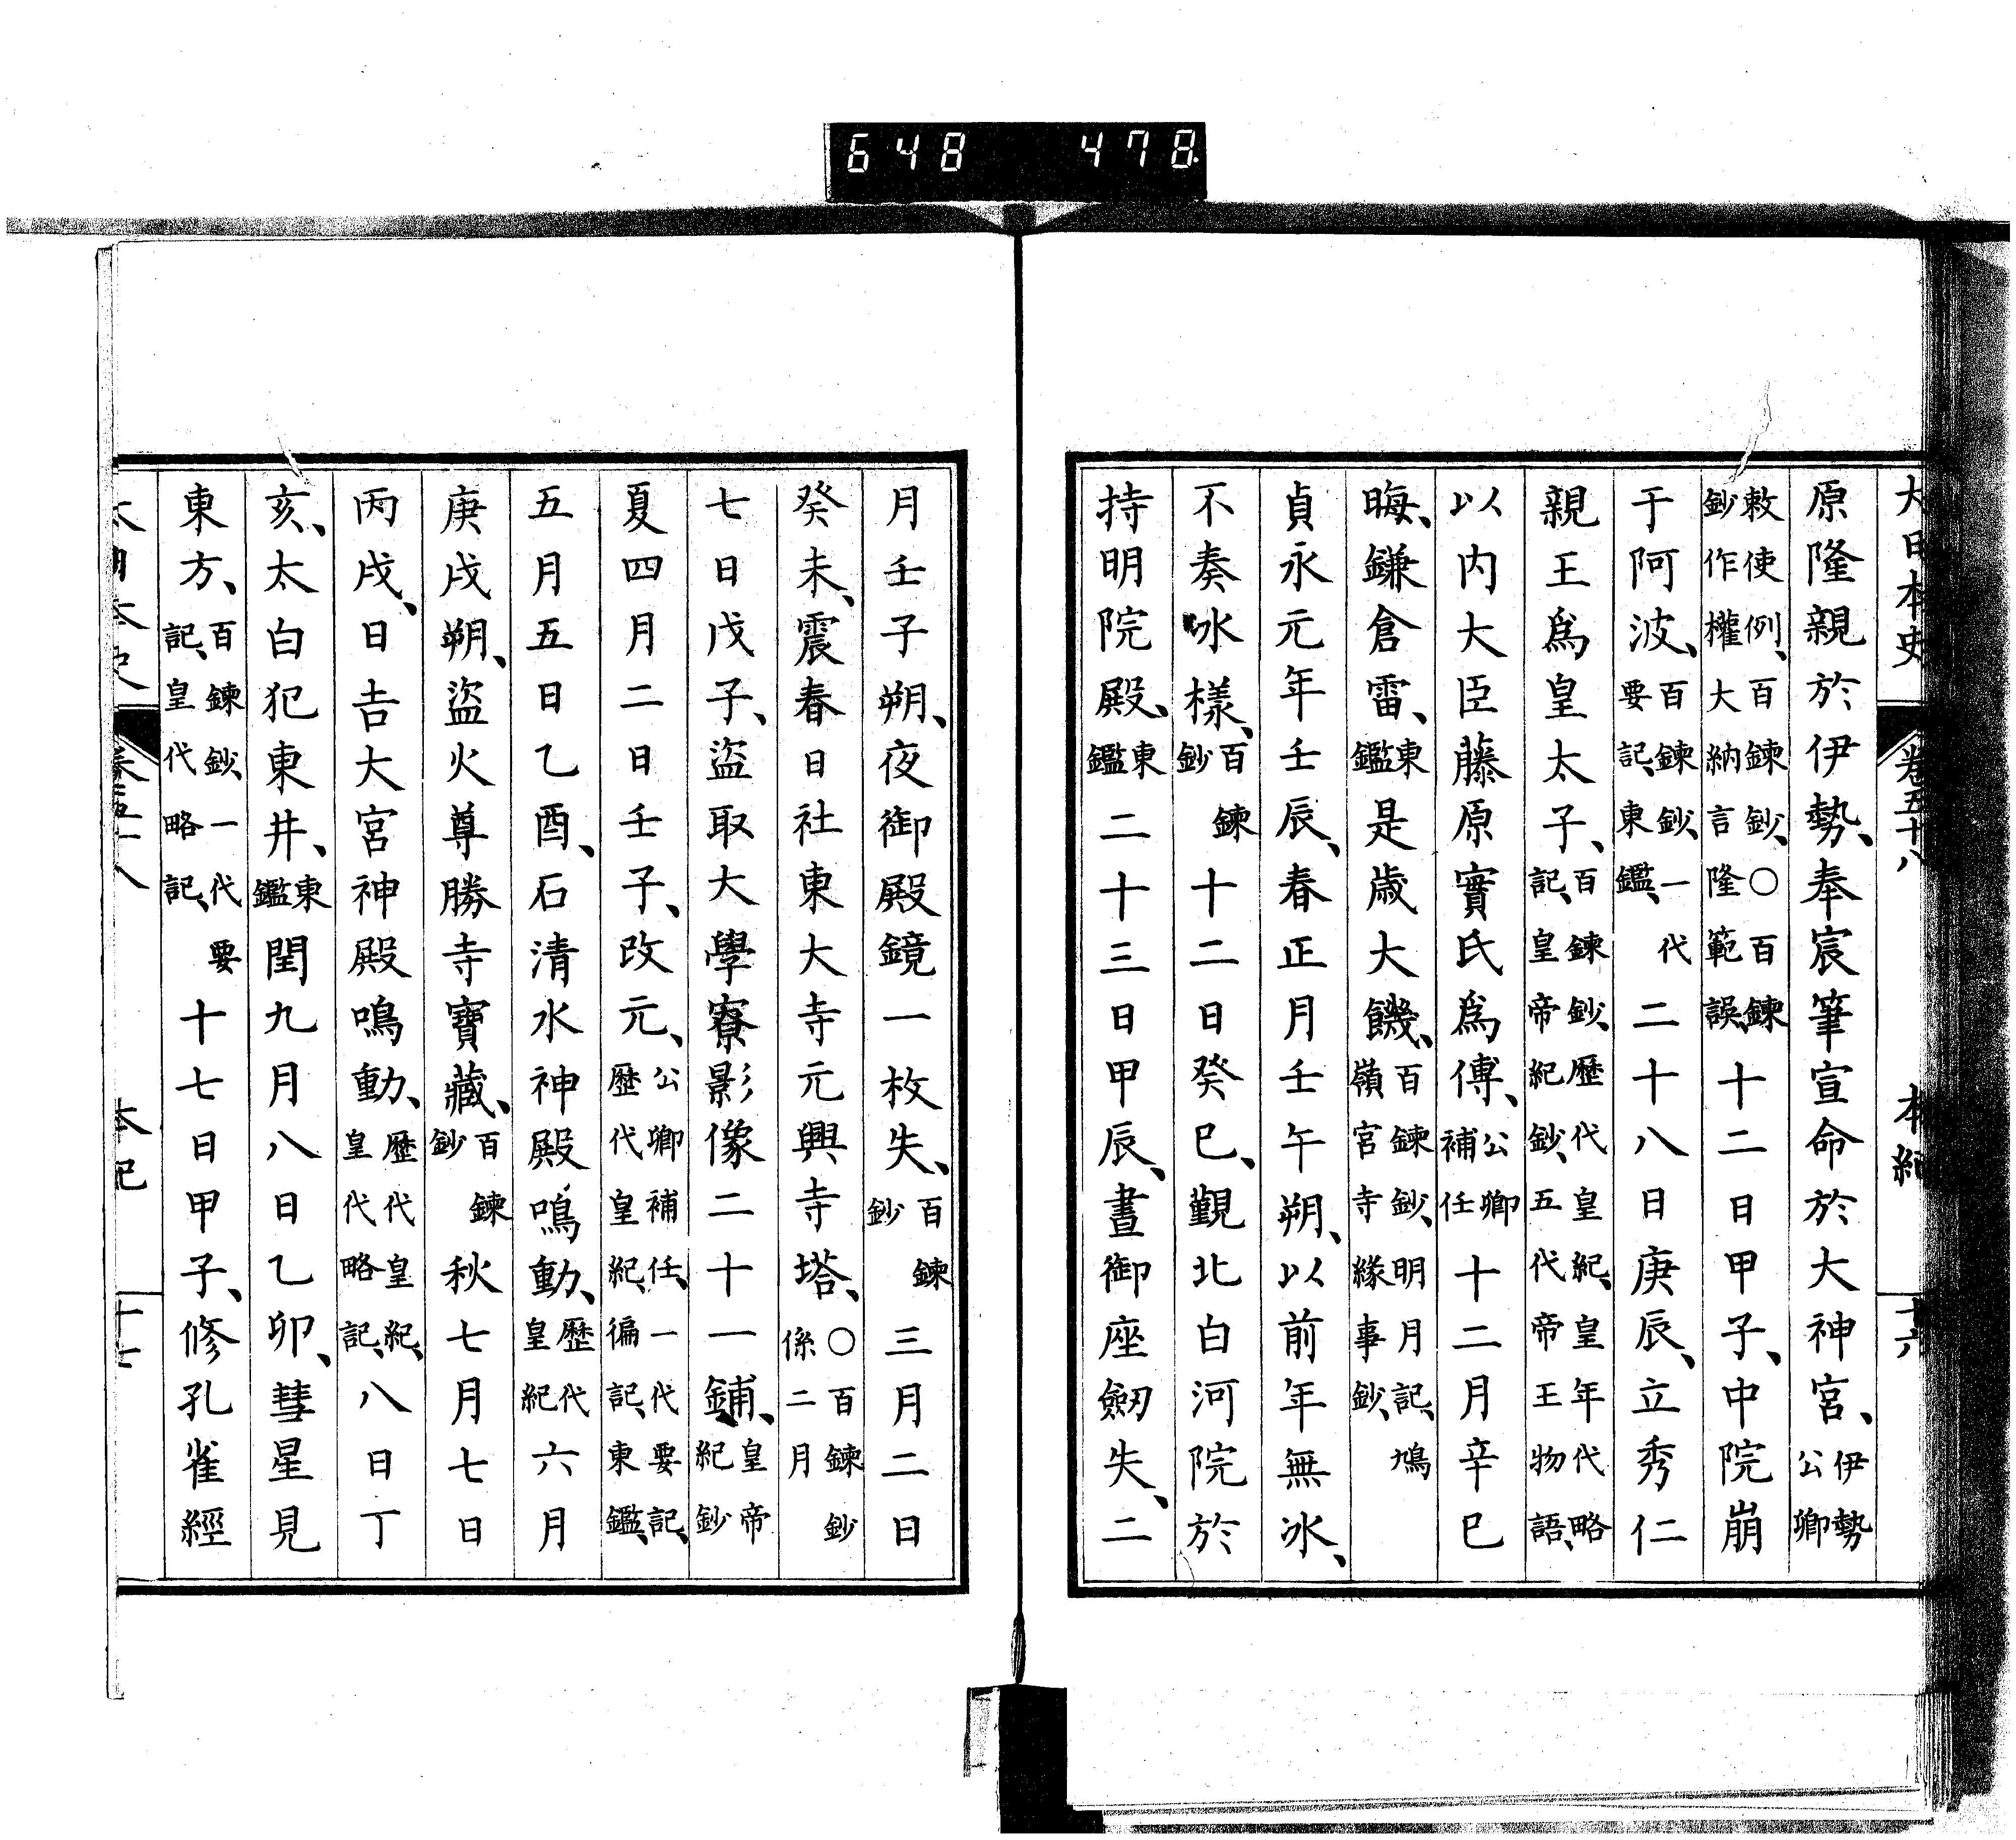 648 478
大日本史 卷五十八 本紀 十六
原隆親於伊勢、奉宸筆宣命於大神宮、伊勢公卿
敕使例、百鍊鈔、○百鍊鈔作權大納言隆範誤、十二日甲子、中院崩
于阿波、百鍊鈔、一代要記、東鑑、二十八日庚辰、立秀仁
親王爲皇太子、百鍊鈔、歷代皇紀、皇年代略記、皇帝紀鈔、五代帝王物語、
以內大臣藤原實氏爲傅、公卿補任十二月辛巳
晦、鎌倉雷、東鑑是歲大饑、百鍊鈔、明月記、鳩嶺宮寺緣事鈔、
貞永元年壬辰、春正月壬午朔、以前年無冰、
不奏冰樣、百鍊鈔十二日癸巳、觀北白河院於
持明院殿、東鑑二十三日甲辰、晝御座劒失、二
月壬子朔、夜御殿鏡一枚失、百鍊鈔三月二日
癸未、震春日社東大寺元興寺塔、○百鍊鈔係二月
七日戊子、盜取大學寮影像二十一鋪、皇帝紀鈔
夏四月二日壬子、改元、公卿補任、一代要記、歷代皇紀、徧記、東鑑、
五月五日乙酉、石清水神殿鳴動、歷代皇紀六月
庚戌朔、盜火尊勝寺寶藏、百鍊鈔秋七月七日
丙戌、日吉大宮神殿鳴動、歷代皇紀、皇代略記、八日丁
亥、太白犯東井、東鑑閏九月八日乙卯、彗星見
東方、百鍊鈔、一代要記、皇代略記、十七日甲子、修孔雀經